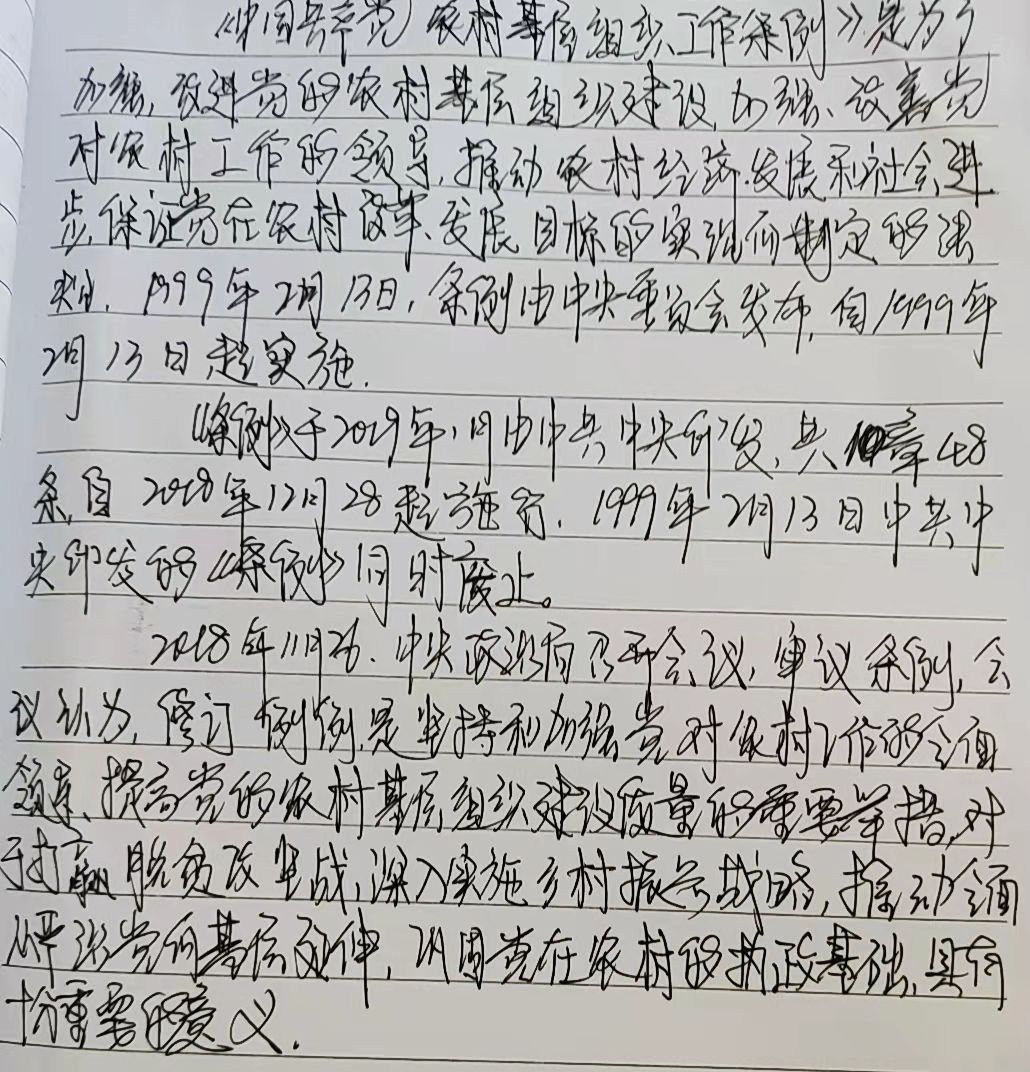 《中国共产党农村基层组织工作条例》是为了
加强、改进党的农村基层组织建设,加强、改善党
对农村工作的领导,推动农村经济发展和社会进
步,保证党在农村改革、发展目标的实现而制定的法
规. 1999年2月13日,条例由中央委员会发布,自1999年
2月13日起实施.
《条例》于2019年1月由中共中央印发,共10章48
条,自2018年12月28起施行. 1999年2月13日中共中
央印发的《条例》同时废止。
2018年11月26.中央政治局召开会议,审议条例,会
议认为,修订条例,是坚持和加强党对农村工作的全面
领导、提高党的农村基层组织建设质量的重要举措,对
于打赢脱贫攻坚战,深入实施乡村振兴战略,推动全面
从严治党向基层延伸,巩固党在农村的执政基础,具有
十分重要的意义.